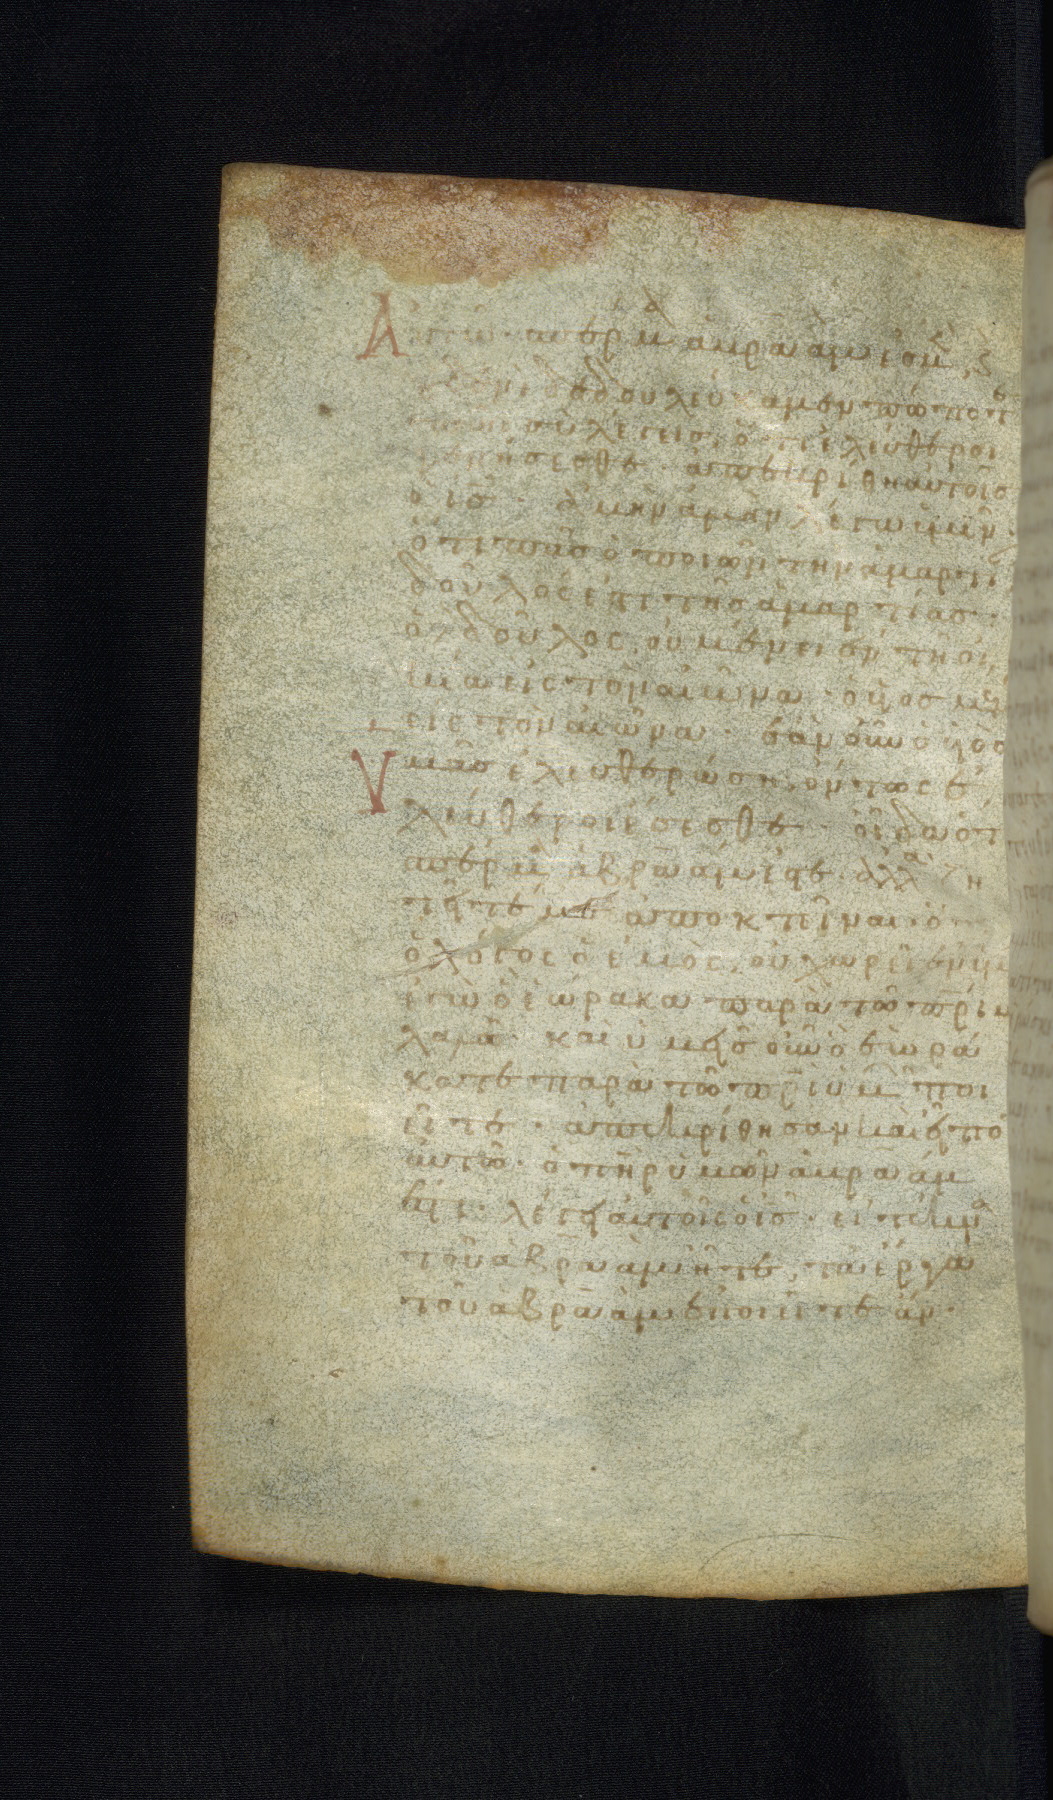 αὐτῷ· σπέρμα ἀβρααμ ἐσμεν, κ
δεδουλεύκαμεν πώποτε
σὺ λέγεις, ὅτι ἐλεύθεροι
γενήσεσθε· ἀπεκρίθη αὐτοῖς
ὁ ις· ἀμὴν ἀμὴν λέγω ὑμῖν
ὅτι πᾶς ὁ ποιῶν τὴν ἁμαρτί
δοῦλός ἐστι τῆς ἁμαρτίας·
ὁ δὲ δοῦλος οὐ μένει ἐν τῇ οἰ
κία εἰς τὸν αἰῶνα· ὁ υἱὸς μέ
εἰς τὸν αἰῶνα· ἐὰν οὖν ὁ υἱὸς
Υμᾶς ἐλευθερώσῃ, ὄντως ἐ
λεύθεροι ἔσεσθε· οἶδα ὅτι
σπέρμα ἀβρααμ ἐστε· ἀλλὰ ζη
τεῖτέ με ἀποκτεῖναι· ὅ
ὁ λόγος ὁ ἐμὸς οὐ χωρεῖ ἐν ὑμῖν
ἐγὼ ὃ ἑώρακα παρὰ τῷ πρι μ
λαλῶ· καὶ ὑμεῖς οὖν ὃ ἑωρά
κατε παρὰ τῷ πρι ὑμῶν ποι
εῖτε· ἀπεκρίθησαν καὶ εἶπον
αὐτῷ· ὁ πηρ ὑμῶν ἀβρααμ
ἐστι· λέγει αὐτοῖς ὁ ις· εἰ τέκνα
τοῦ ἀβρααμ ἦτε, τὰ ἔργα
τοῦ ἀβρααμ ἐποιεῖτε ἄν·